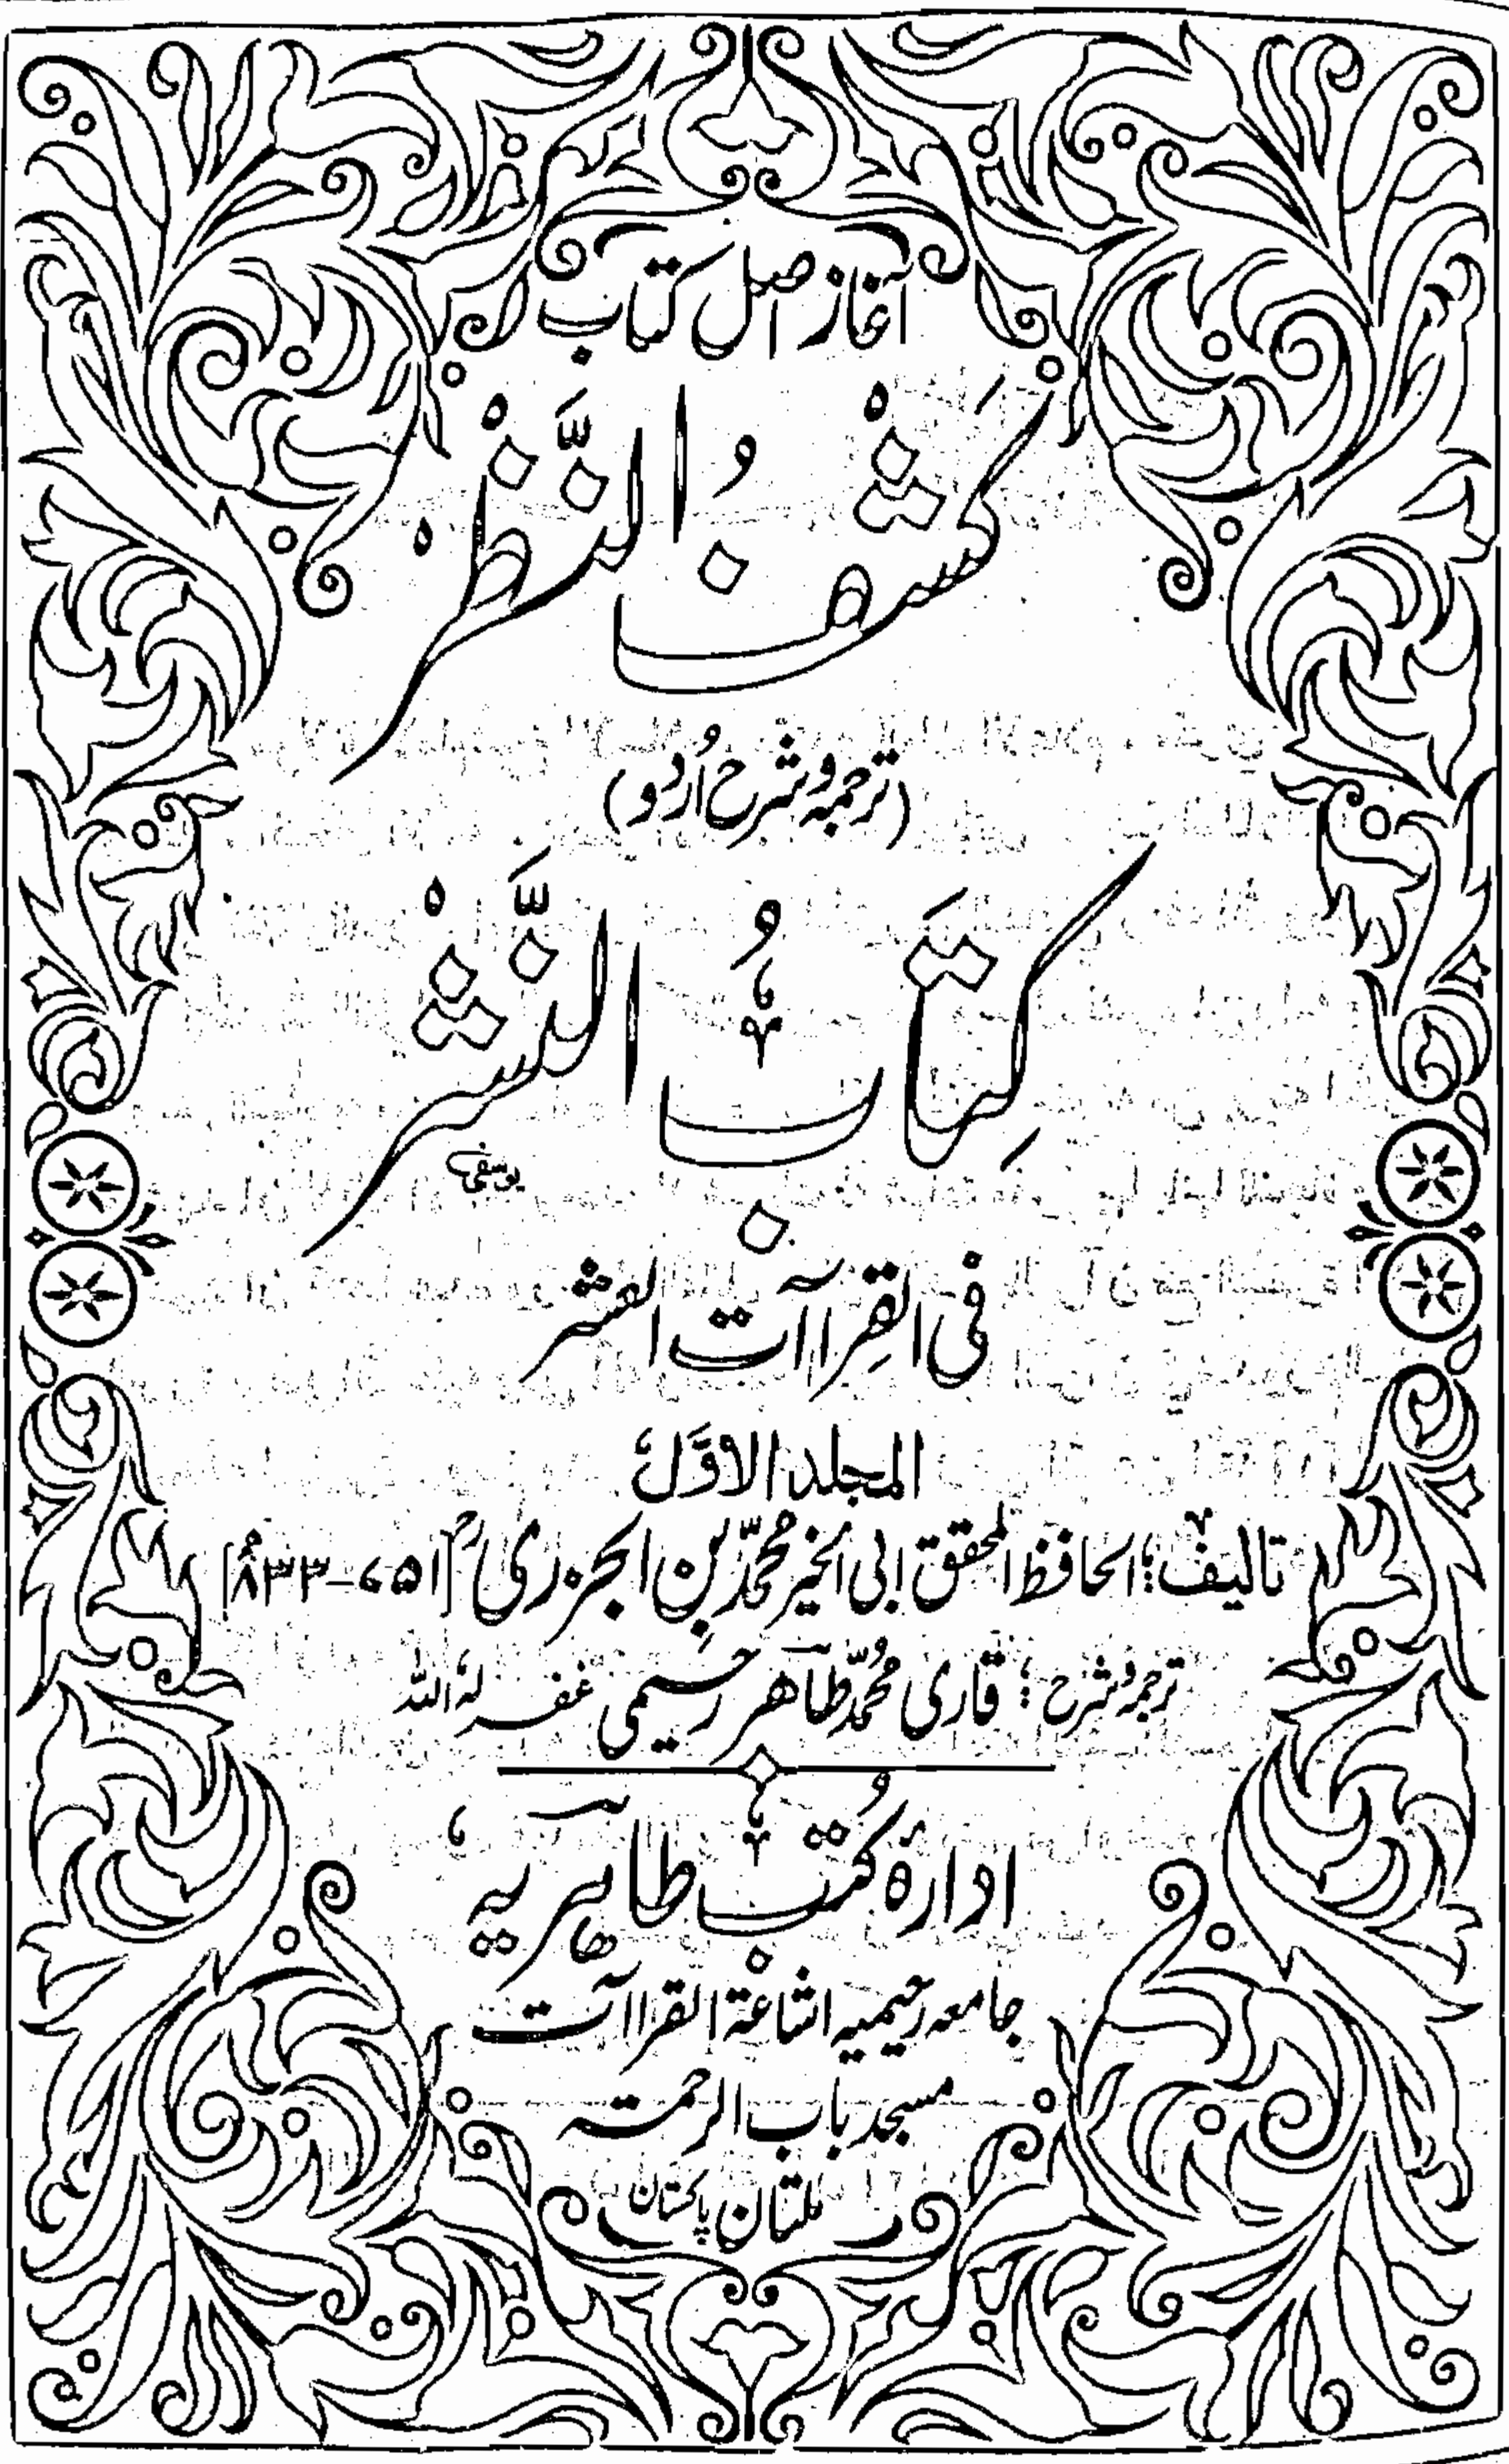 آغاز اصل کتاب
کَشْفُ النَّظْرْ
(ترجمہ و شرح اُردو)
کِتَابُ النَّشْر
یوسفی
فی القِراآت العشر
المجلد الاوّل
تالیف: الحافظ المحقق ابی الخیر محمّد بن الجزری ؒ [۷۵۱-۸۳۳ھ]
ترجمہ و شرح: قاری محمّد طاھر رحیمی غفر لہُ اللہ
ادارۂ کُتب طاہریہ
جامعہ رحیمیہ اشاعۃ القراآت
مسجد باب الرحمتہ
ملتان پاکستان